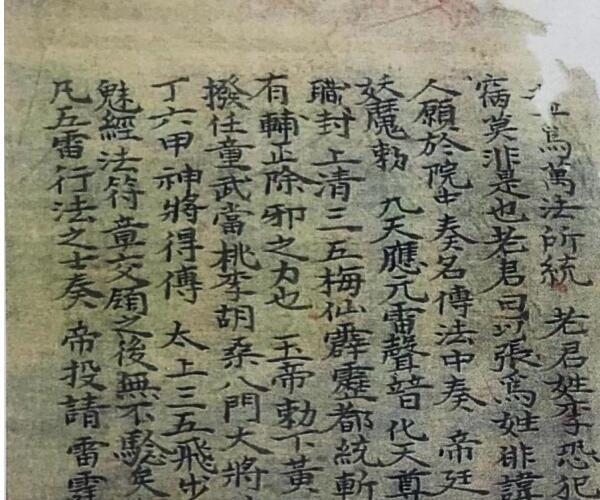 爲萬法所統 老君姓李恐犯
病莫非是也老君曰以張爲姓排諱
人願於院中奏名傳法中奏 帝廷
妖魔勑 九天應元雷聲普化天尊
職封 上清三五梅仙霹靂都統斬
有輔正除邪之力也 玉帝勅下黃
撥任童武當桃李胡桑八門大將
丁六甲神將得傳 太上三五飛步
魅經法符章交領之後無不驗矣
凡五雷行法之士奏 帝投請雷霆